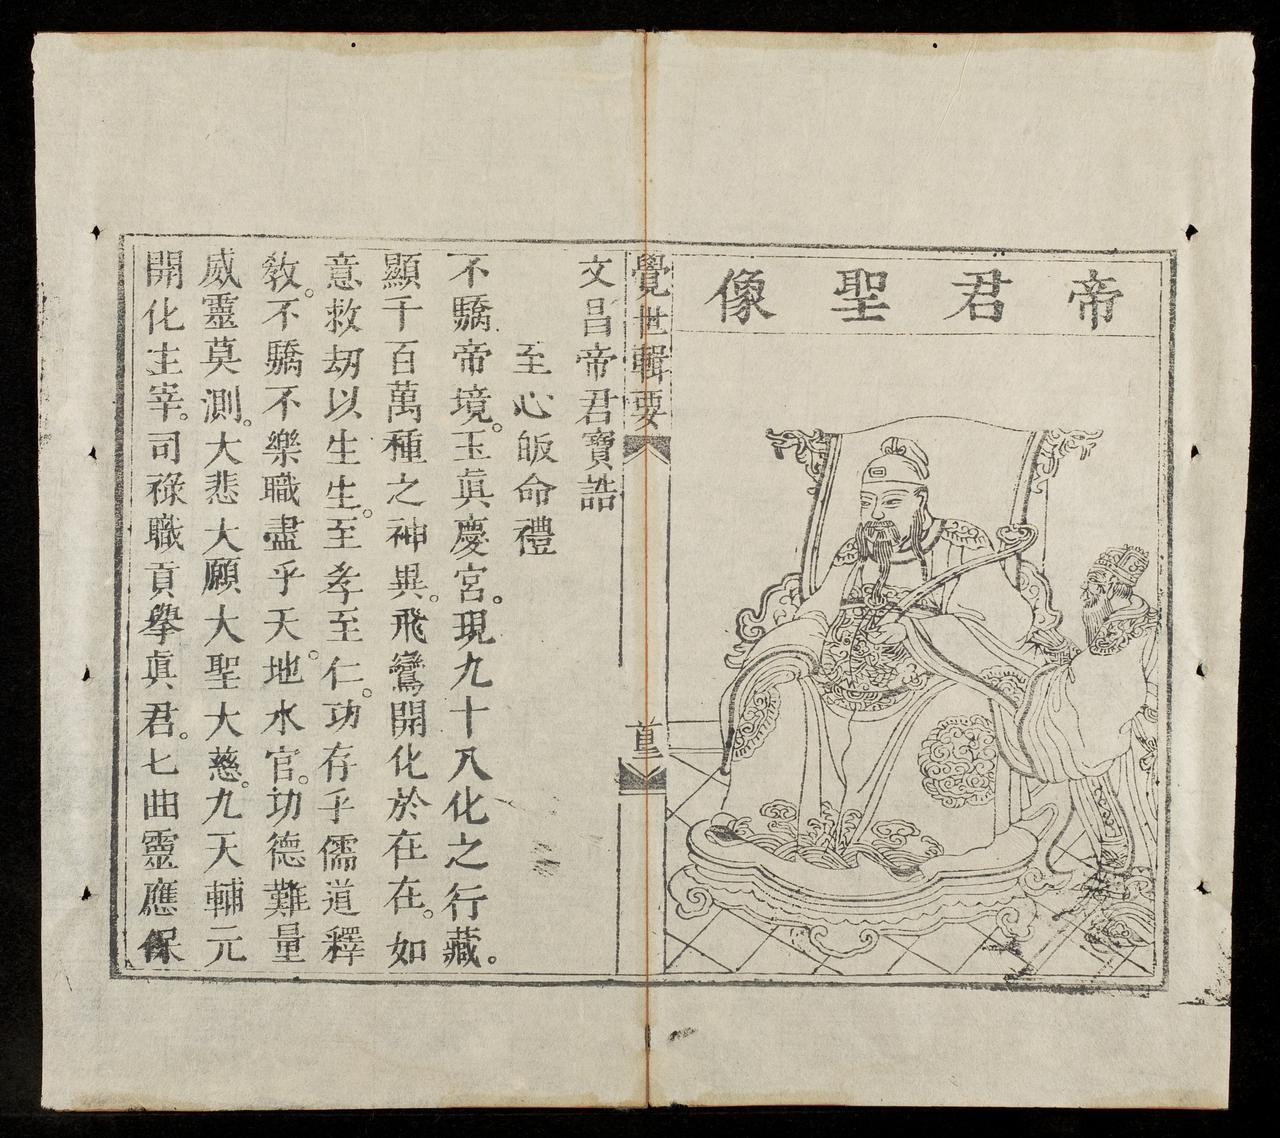 帝君聖像
覺世輯要
文昌帝君寶誥
至心皈命禮
不驕帝境。玉眞慶宮。現九十八化之行藏。
顯千百萬種之神異。飛鸞開化於在在。如
意救刼以生生。至孝至仁。功存乎儒道釋
敎。不驕不樂職盡乎天。地水官。功德難量
威靈莫測。大悲大願大聖大慈。九天輔元
開化主宰。司祿職貢舉眞君。七曲靈應保